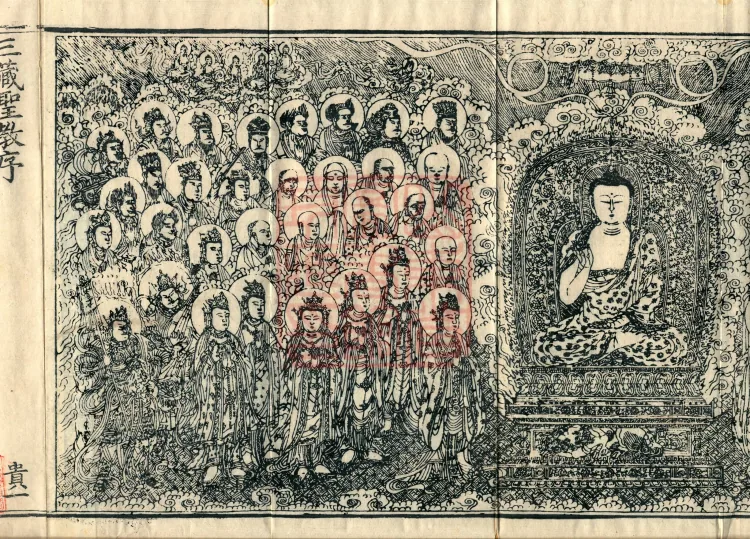 三藏聖教序
貴一